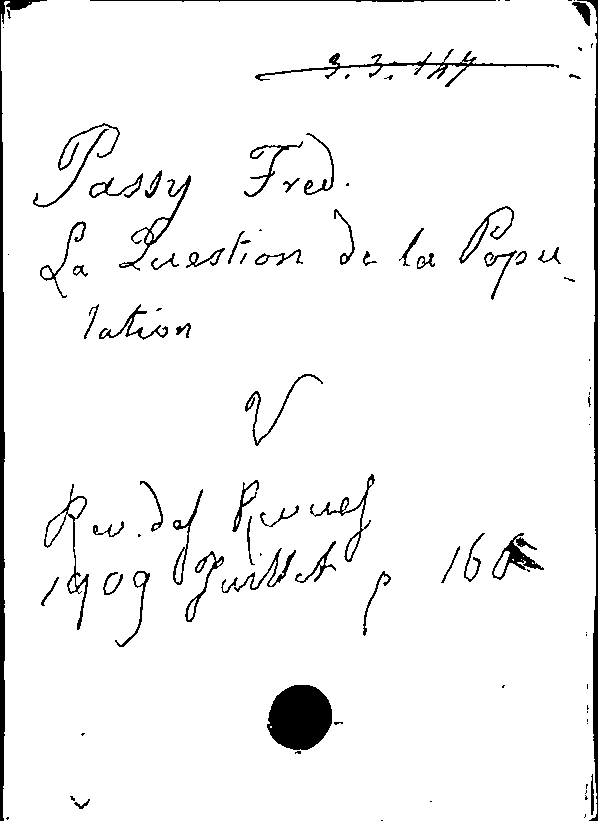 3.3.147
Passy Fred.
La Question de la Popu-
lation
V
Rev. des Revues
1909 Juillet p 160